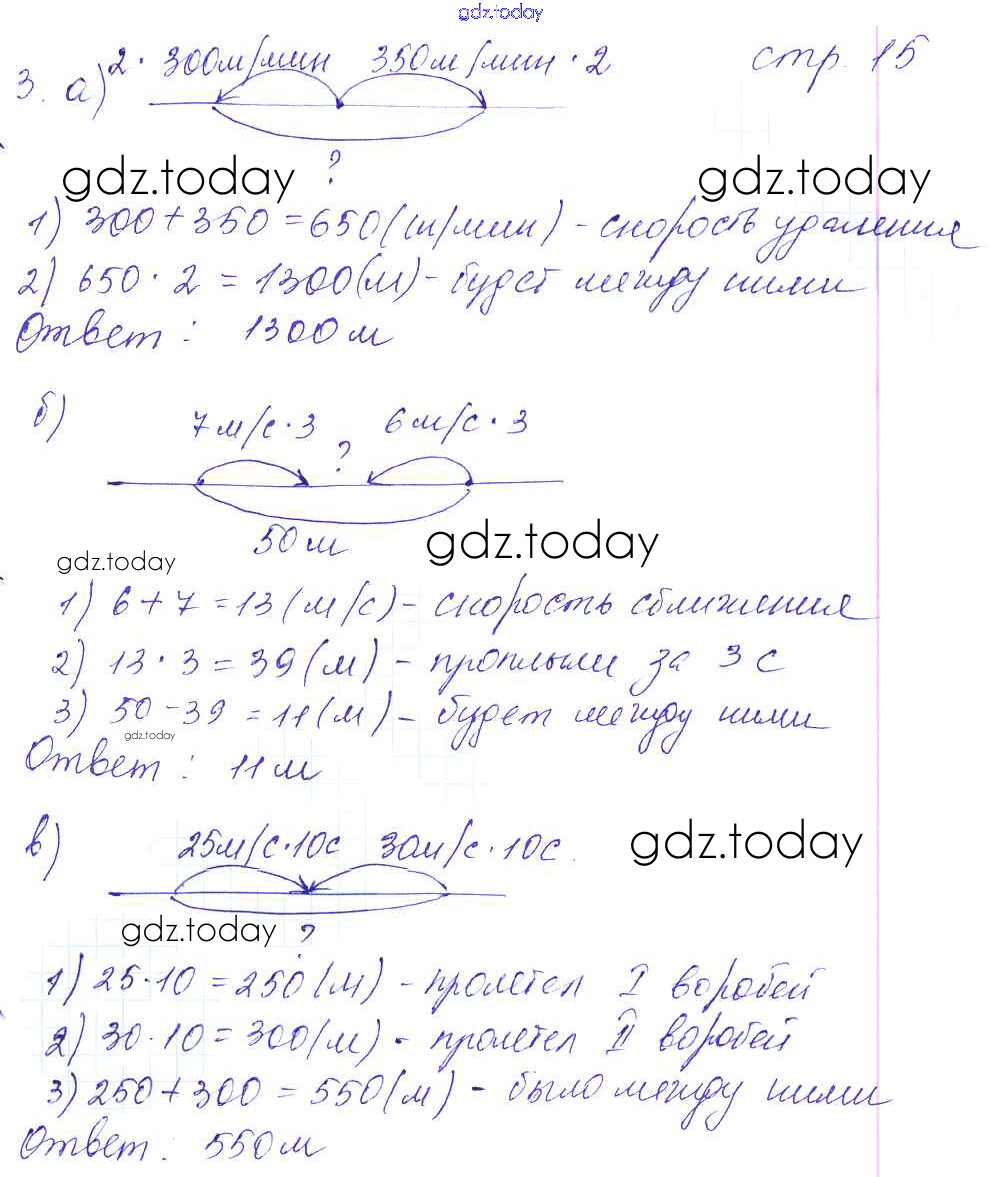 gdz.today
3. а) 2 · 300м/мин 350м/мин · 2 стр. 15
?
gdz.today gdz.today
1) 300 + 350 = 650 (м/мин) - скорость удаления
2) 650 · 2 = 1300 (м) - будет между ними
Ответ : 1300 м
б)
7 м/с · 3 6 м/с · 3
?
50 м gdz.today
gdz.today
1) 6 + 7 = 13 (м/с) - скорость сближения
2) 13 · 3 = 39 (м) - проплыли за 3 с
3) 50 - 39 = 11 (м) - будет между ними
gdz.today
Ответ : 11 м
в) 25м/с·10с 30м/с·10с. gdz.today
gdz.today ?
1) 25·10 = 250 (м) - пролетел I воробей
2) 30·10 = 300 (м) - пролетел II воробей
3) 250 + 300 = 550 (м) - было между ними
Ответ : 550м